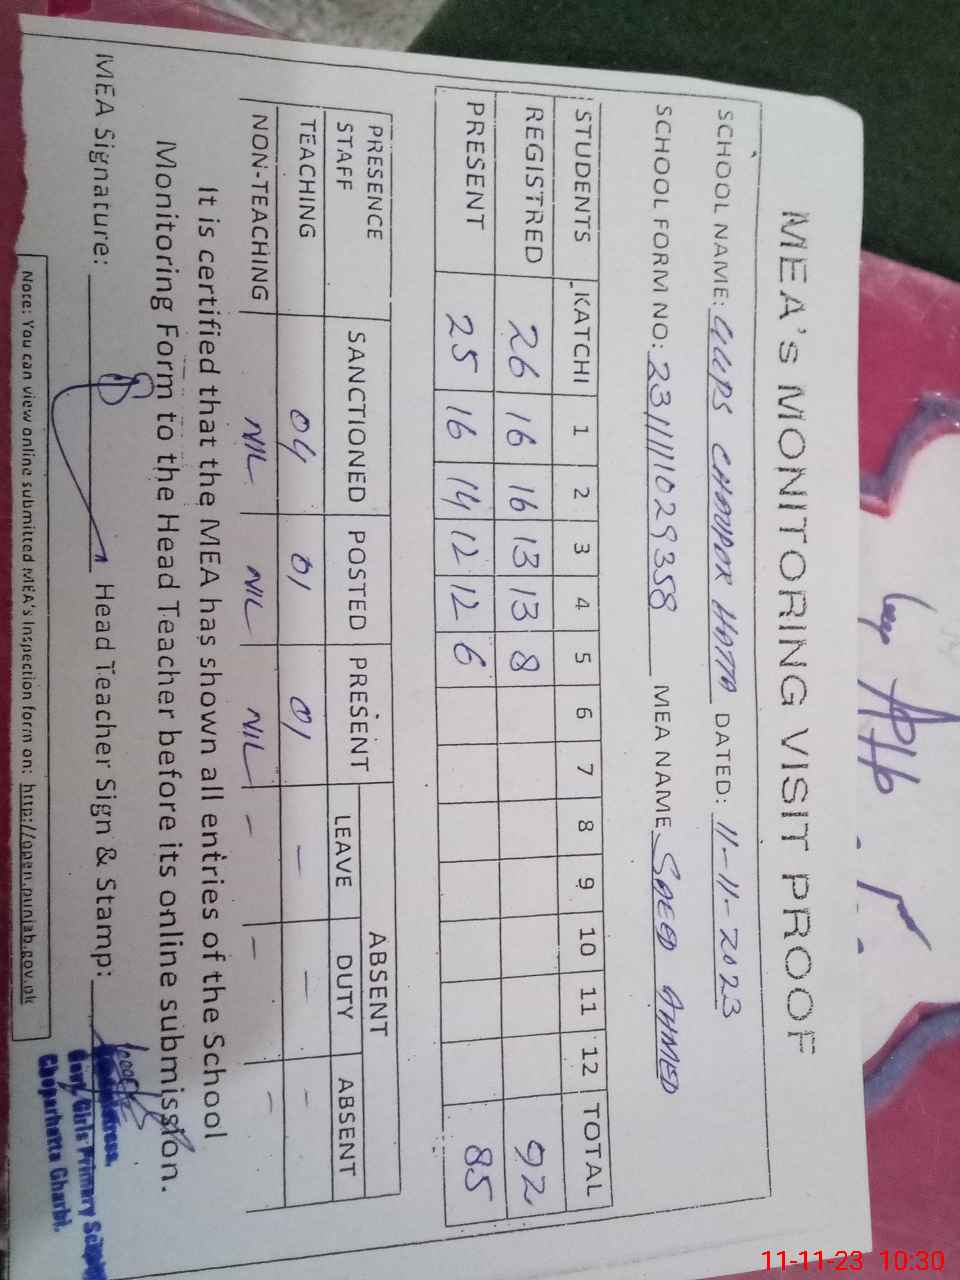 MEA's MONITORING VISIT PROOF
SCHOOL NAME: GGPS CHOUPOR HATTA DATED: 11-11-2023
SCHOOL FORM NO: 23111111029358 MEA NAME SAEED AHMED
STUDENTS KATCHI 1 2 3 4 5 6 7 8 9 10 11 12 TOTAL
REGISTRED 26 16 16 13 13 8 92
PRESENT 25 16 14 12 12 6 85
PRESENCE STAFF SANCTIONED POSTED PRESENT ABSENT
LEAVE DUTY ABSENT
TEACHING 04 01 01 - - -
NON-TEACHING NIL NIL NIL - - -
It is certified that the MEA has shown all entries of the School
Monitoring Form to the Head Teacher before its online submission.
MEA Signature: Head Teacher Sign & Stamp:
Govt. Girls Primary School
Choparhatta Gharbi.
Note: You can view online submitted MEA's Inspection form on: http://open.punjab.gov.pk
11-11-23 10:30